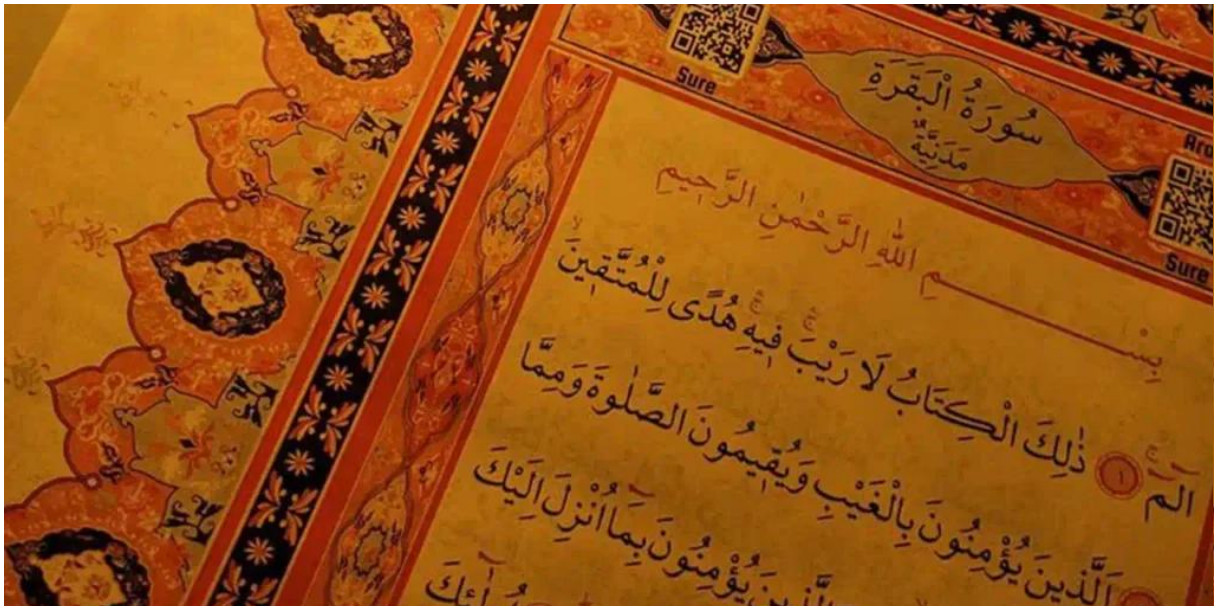 Sure
سُورَةُ الْبَقَرَةِ
مَدَنِيَّةٌ
Sure
بِسْــــــمِ اللهِ الرَّحْمٰنِ الرَّحِيمِ
الٓمٓ ۚ ﴿١﴾ ذٰلِكَ الْكِتَابُ لَا رَيْبَ ۚ فِيهِ ۚ هُدًى لِلْمُتَّقِينَ ۙ
اَلَّذِينَ يُؤْمِنُونَ بِالْغَيْبِ وَيُقِيمُونَ الصَّلٰوةَ وَمِمَّا
يُؤْمِنُونَ بِمَٓا اُنْزِلَ اِلَيْكَ